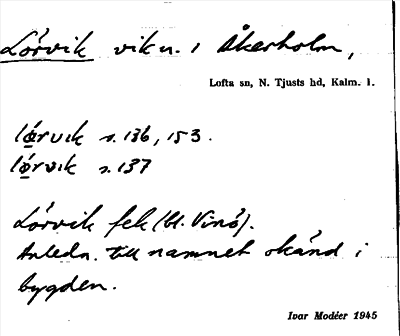 Lörvik vik n. i Åkerholm,
Lofta sn, N. Tjusts hd, Kalm. l.
lǿrvik s. 136, 153.
lǿrvik s. 137
Lörvik fek (bl. Vinö).
Anledn. till namnet okänd i
bygden.
Ivar Modéer 1945